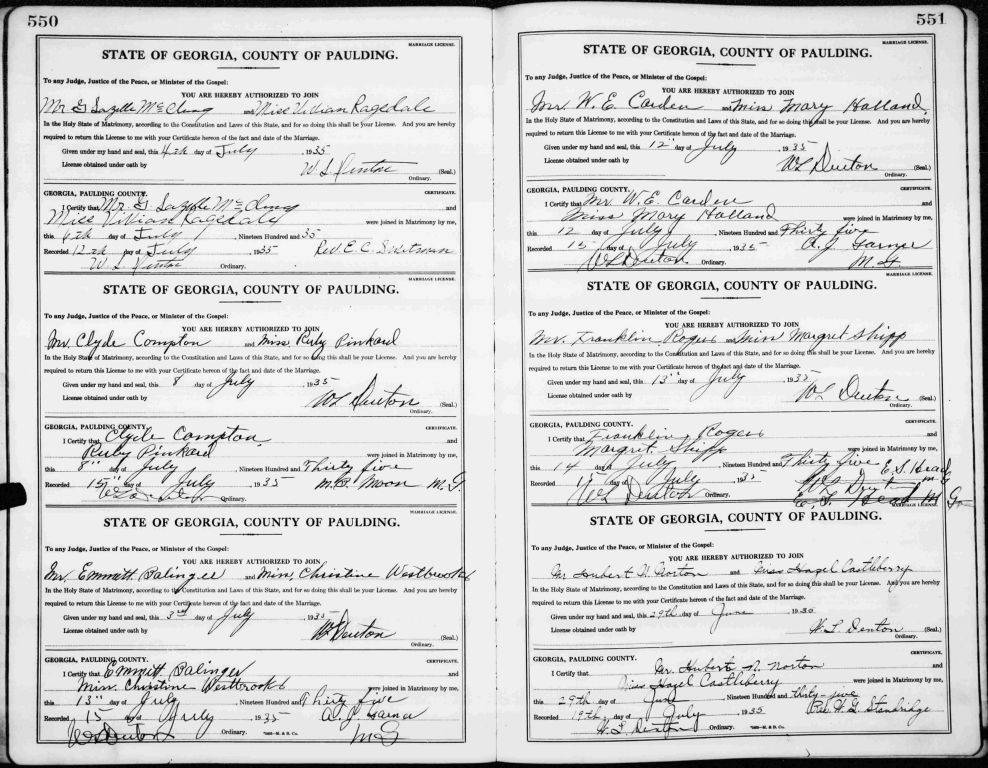 550
MARRIAGE LICENSE.
STATE OF GEORGIA, COUNTY OF PAULDING.
To any Judge, Justice of the Peace, or Minister of the Gospel:
YOU ARE HEREBY AUTHORIZED TO JOIN
Mr. G Lazelle McClung and Miss Vivian Ragsdale
In the Holy State of Matrimony, according to the Constitution and Laws of this State, and for so doing this shall be your License. And you are hereby
required to return this License to me with your Certificate hereon of the fact and date of the Marriage.
Given under my hand and seal, this 4th day of July, 1935
License obtained under oath by W. L. Denton (Seal.)
Ordinary.
GEORGIA, PAULDING COUNTY. CERTIFICATE.
I Certify that Mr. G Lazelle McClung and
Miss Vivian Ragsdale were joined in Matrimony by me,
this day of July, Nineteen Hundred and 35
Recorded 12th day of July 1935 Rev E. C.
W. L. Denton Ordinary.
MARRIAGE LICENSE.
STATE OF GEORGIA, COUNTY OF PAULDING.
To any Judge, Justice of the Peace, or Minister of the Gospel:
YOU ARE HEREBY AUTHORIZED TO JOIN
Mr. Clyde Compton and Miss Ruby Pinkard
In the Holy State of Matrimony, according to the Constitution and Laws of this State, and for so doing this shall be your License. And you are hereby
required to return this License to me with your Certificate hereon of the fact and date of the Marriage.
Given under my hand and seal, this 8 day of July, 1935
License obtained under oath by WL Denton (Seal.)
Ordinary.
GEORGIA, PAULDING COUNTY. CERTIFICATE.
I Certify that Clyde Compton and
Ruby Pinkard were joined in Matrimony by me,
this 8" day of July, Nineteen Hundred and Thirty five
Recorded 15" day of July 1935 M.B. Moon M.G.
Ordinary.
MARRIAGE LICENSE.
STATE OF GEORGIA, COUNTY OF PAULDING.
To any Judge, Justice of the Peace, or Minister of the Gospel:
YOU ARE HEREBY AUTHORIZED TO JOIN
Mr. Emmitt Balinger and Miss, Christine Westbrooks
In the Holy State of Matrimony, according to the Constitution and Laws of this State, and for so doing this shall be your License. And you are hereby
required to return this License to me with your Certificate hereon of the fact and date of the Marriage.
Given under my hand and seal, this 3rd day of July, 1935
License obtained under oath by WL Denton (Seal.)
Ordinary.
GEORGIA, PAULDING COUNTY. CERTIFICATE.
I Certify that Emmitt Balinger and
Miss. Christine Westbrooks were joined in Matrimony by me,
this 13" day of July, Nineteen Hundred and Thirty five
Recorded 15 day of July 1935 A. J. Garner
WL Denton Ordinary. M.G.
551
MARRIAGE LICENSE.
STATE OF GEORGIA, COUNTY OF PAULDING.
To any Judge, Justice of the Peace, or Minister of the Gospel:
YOU ARE HEREBY AUTHORIZED TO JOIN
Mr. W. E. Carden and Miss Mary Holland
In the Holy State of Matrimony, according to the Constitution and Laws of this State, and for so doing this shall be your License. And you are hereby
required to return this License to me with your Certificate hereon of the fact and date of the Marriage.
Given under my hand and seal, this 12 day of July, 1935
License obtained under oath by WL Denton (Seal.)
Ordinary.
GEORGIA, PAULDING COUNTY. CERTIFICATE.
I Certify that Mr. W. E. Carden and
Miss Mary Holland were joined in Matrimony by me,
this 12 day of July, Nineteen Hundred and Thirty five
Recorded 15 day of July 1935 A. J. Garner
WL Denton Ordinary. M.G.
MARRIAGE LICENSE.
STATE OF GEORGIA, COUNTY OF PAULDING.
To any Judge, Justice of the Peace, or Minister of the Gospel:
YOU ARE HEREBY AUTHORIZED TO JOIN
Mr. Franklin Rogers and Miss Margret Shipp
In the Holy State of Matrimony, according to the Constitution and Laws of this State, and for so doing this shall be your License. And you are hereby
required to return this License to me with your Certificate hereon of the fact and date of the Marriage.
Given under my hand and seal, this 13" day of July, 1935
License obtained under oath by WL Denton (Seal.)
Ordinary.
GEORGIA, PAULDING COUNTY. CERTIFICATE.
I Certify that Franklin Rogers and
Margret Shipp were joined in Matrimony by me,
this 14 day of July, Nineteen Hundred and Thirty five E. S. Head
Recorded 17 day of July 1935 M G
WL Denton Ordinary. Head M G
MARRIAGE LICENSE.
STATE OF GEORGIA, COUNTY OF PAULDING.
To any Judge, Justice of the Peace, or Minister of the Gospel:
YOU ARE HEREBY AUTHORIZED TO JOIN
Mr Hubert H. Norton and Miss Hazel Castleberry
In the Holy State of Matrimony, according to the Constitution and Laws of this State, and for so doing this shall be your License. And you are hereby
required to return this License to me with your Certificate hereon of the fact and date of the Marriage.
Given under my hand and seal, this 29th day of June, 1935
License obtained under oath by W. L. Denton (Seal.)
Ordinary.
GEORGIA, PAULDING COUNTY. CERTIFICATE.
I Certify that Mr. Hubert H. Norton and
Miss Hazel Castleberry were joined in Matrimony by me,
this 29th day of June, Nineteen Hundred and thirty-five
Recorded 19th day of July 1935 Rev. W. G. Standridge
W. L. Denton Ordinary.